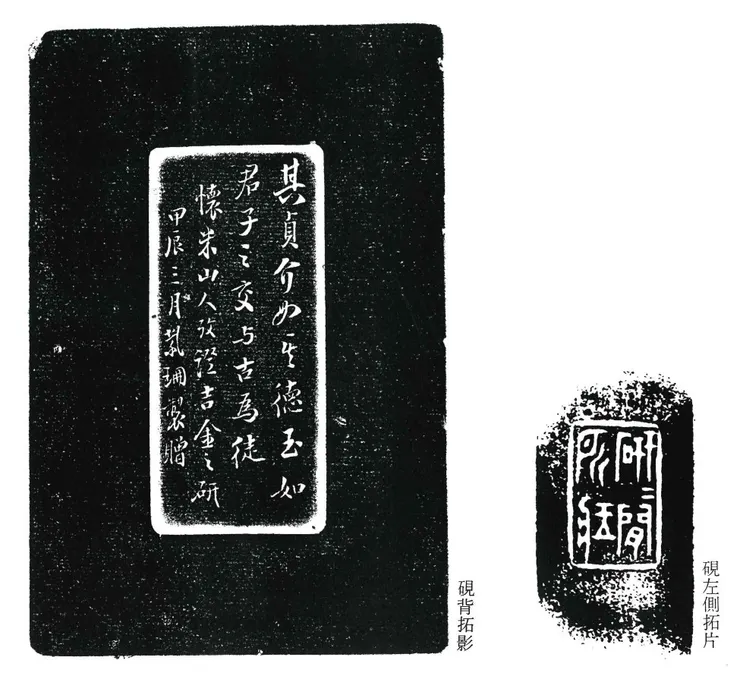 其貞介如其德玉如
君子之交与古為徒
懷米山人攷證吉金之研
甲辰三月紫珊製贈
硯背拓影
硯左側拓片